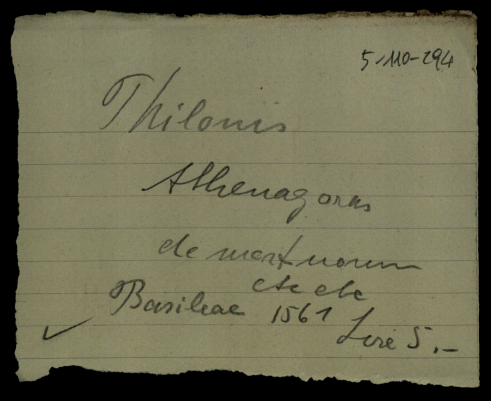 5-110-294
Thilonis
Athenagoras
de mortuorum
etc etc
Basileae 1561
Lire 5.—